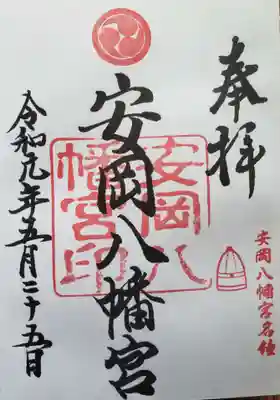 奉拝
安岡八幡宮名鐘
安岡八幡宮
安岡八幡宮印
令和元年五月二十五日